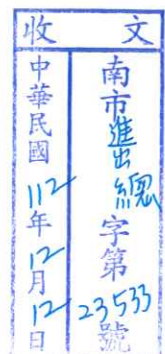 收文
南市進出總字第23533號
中華民國112年12月12日